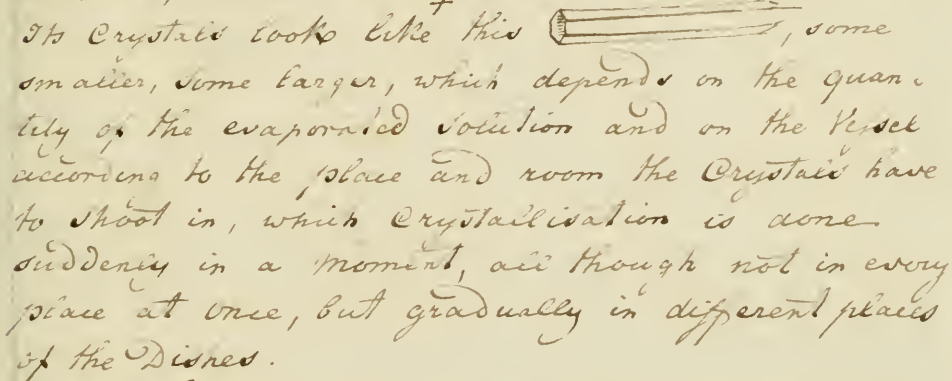 Its Crystals look like this + , some
smaller, some larger, which depends on the quan-
tity of the evaporated Solution and on the Vessel
according to the place and room the Crystals have
to shoot in, which Crystallisation is done
suddenly in a moment, all though not in every
place at once, but gradually in different places
of the Dishes.